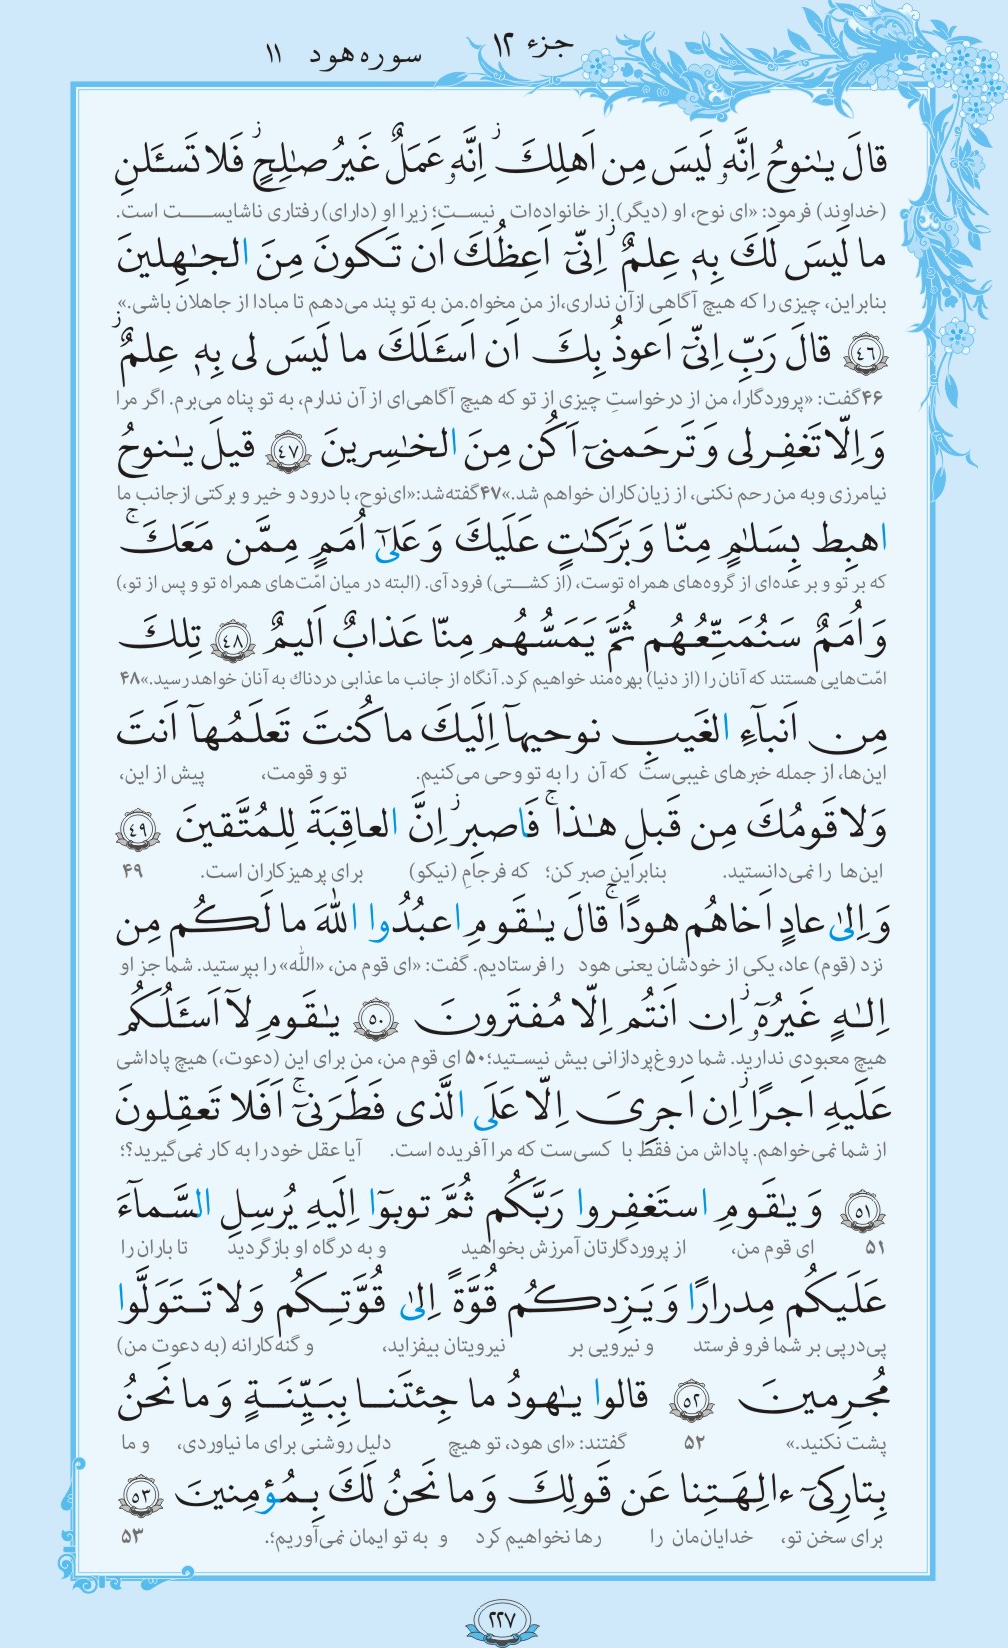 جزء ۱۲
سوره هود ۱۱
قالَ يـٰنوحُ اِنَّهٗ لَيسَ مِن اَهلِكَ ۖ اِنَّهٗ عَمَلٌ غَيرُ صـٰلِحٍ ۖ فَلا تَسـَٔلنِ
(خداوند) فرمود: «ای نوح، او (دیگر) از خانواده‌ات نیست؛ زیرا او (دارای) رفتاری ناشایست است.
ما لَيسَ لَكَ بِهٖ عِلمٌ ۖ اِنّىٓ اَعِظُكَ اَن تَكونَ مِنَ الجـٰهِلينَ
بنابراین، چیزی را که هیچ آگاهی از آن نداری، از من مخواه. من به تو پند می‌دهم تا مبادا از جاهلان باشی.»
﴿٤٦﴾ قالَ رَبِّ اِنّىٓ اَعوذُ بِكَ اَن اَسـَٔلَكَ ما لَيسَ لى بِهٖ عِلمٌ ۖ
۴۶ گفت: «پروردگارا، من از درخواستِ چیزی از تو که هیچ آگاهی‌ای از آن ندارم، به تو پناه می‌برم. اگر مرا
وَ اِلّا تَغفِرلى وَ تَرحَمنىٓ اَكُن مِنَ الخـٰسِرينَ ﴿٤٧﴾ قيلَ يـٰنوحُ
نیامرزی و به من رحم نکنی، از زیان‌کاران خواهم شد.» ۴۷ گفته شد: «ای نوح، با درود و خیر و برکتی از جانب ما
اهبِط بِسَلـٰمٍ مِنّا وَ بَرَكـٰتٍ عَلَيكَ وَ عَلىٰٓ اُمَمٍ مِمَّن مَعَكَ ۚ
که بر تو و بر عده‌ای از گروه‌های همراه توست، (از کشتی) فرود آی. (البته در میان امّت‌های همراه تو و پس از تو،)
وَ اُمَمٌ سَنُمَتِّعُهُم ثُمَّ يَمَسُّهُم مِنّا عَذابٌ اَليمٌ ﴿٤٨﴾ تِلكَ
امّت‌هایی هستند که آنان را (از دنیا) بهره‌مند خواهیم کرد. آنگاه از جانب ما عذابی دردناک به آنان خواهد رسید.» ۴۸
مِن اَنبآءِ الغَيبِ نوحيهآ اِلَيكَ ما كُنتَ تَعلَمُهآ اَنتَ
این‌ها، از جمله خبرهای غیبی‌ست که آن را به تو وحی می‌کنیم. تو و قومت، پیش از این،
وَ لا قَومُكَ مِن قَبلِ هـٰذا ۚ فَاصبِر ۖ اِنَّ العاقِبَةَ لِلمُتَّقينَ ﴿٤٩﴾
این‌ها را نمی‌دانستید. بنابراین صبر کن؛ که فرجامِ (نیکو) برای پرهیزکاران است. ۴۹
وَ اِلىٰ عادٍ اَخاهُم هودًا ۚ قالَ يـٰقَومِ اعبُدُوا اللّٰهَ ما لَكُم مِن
نزد (قوم) عاد، یکی از خودشان یعنی هود را فرستادیم. گفت: «ای قوم من، «اللّٰه» را بپرستید. شما جز او
اِلـٰهٍ غَيرُهٗٓ ۖ اِن اَنتُم اِلّا مُفتَرونَ ﴿٥٠﴾ يـٰقَومِ لآ اَسـَٔلُكُم
هیچ معبودی ندارید. شما دروغ‌پردازانی بیش نیستید؛ ۵۰ ای قوم من، من برای این (دعوت،) هیچ پاداشی
عَلَيهِ اَجرًا ۖ اِن اَجرِىَ اِلّا عَلَى الَّذى فَطَرَنىٓ ۚ اَفَلا تَعقِلونَ
از شما نمی‌خواهم. پاداش من فقط با کسی‌ست که مرا آفریده است. آیا عقل خود را به کار نمی‌گیرید؟؛
﴿٥١﴾ وَ يـٰقَومِ استَغفِروا رَبَّكُم ثُمَّ توبوٓا اِلَيهِ يُرسِلِ السَّمآءَ
۵۱ ای قوم من، از پروردگارتان آمرزش بخواهید و به درگاه او بازگردید تا باران را
عَلَيكُم مِدرارًا وَ يَزِدكُم قُوَّةً اِلىٰ قُوَّتِكُم وَ لا تَتَوَلَّوا
پی‌درپی بر شما فرو فرستد و نیرویی بر نیرویتان بیفزاید، و گنه‌کارانه (به دعوت من)
مُجرِمينَ ﴿٥٢﴾ قالوا يـٰهودُ ما جِئتَنا بِبَيِّنَةٍ وَ ما نَحنُ
پشت نکنید.» ۵۲ گفتند: «ای هود، تو هیچ دلیل روشنی برای ما نیاوردی، و ما
بِتارِكىٓ ءالِهَتِنا عَن قَولِكَ وَ ما نَحنُ لَكَ بِمُؤمِنينَ ﴿٥٣﴾
برای سخن تو، خدایان‌مان را رها نخواهیم کرد و به تو ایمان نمی‌آوریم؛. ۵۳
۲۲۷